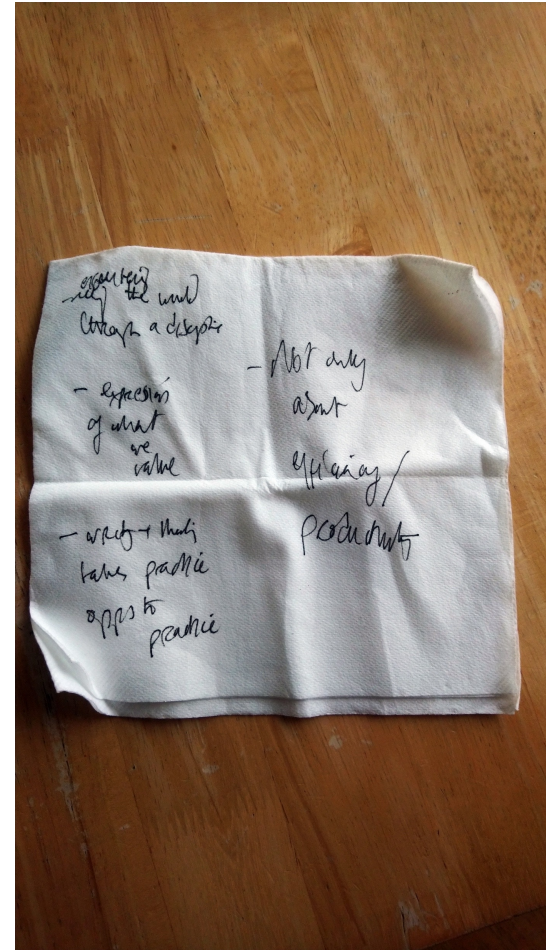 the world
through a discipline
- expressions
of what
we
value
- writing + thinking
takes practice
opps to
practice
- Not only
about
efficiency/
productivity